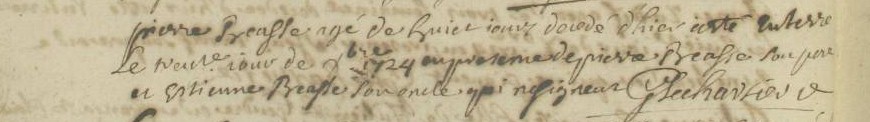 pierre Breasse agé de huict jours decedé d'hier a esté enterre
Le trente jour de 9bre 1724 en presence de pierre Breasse son pere
et Estienne Breasse son oncle qui ne signent